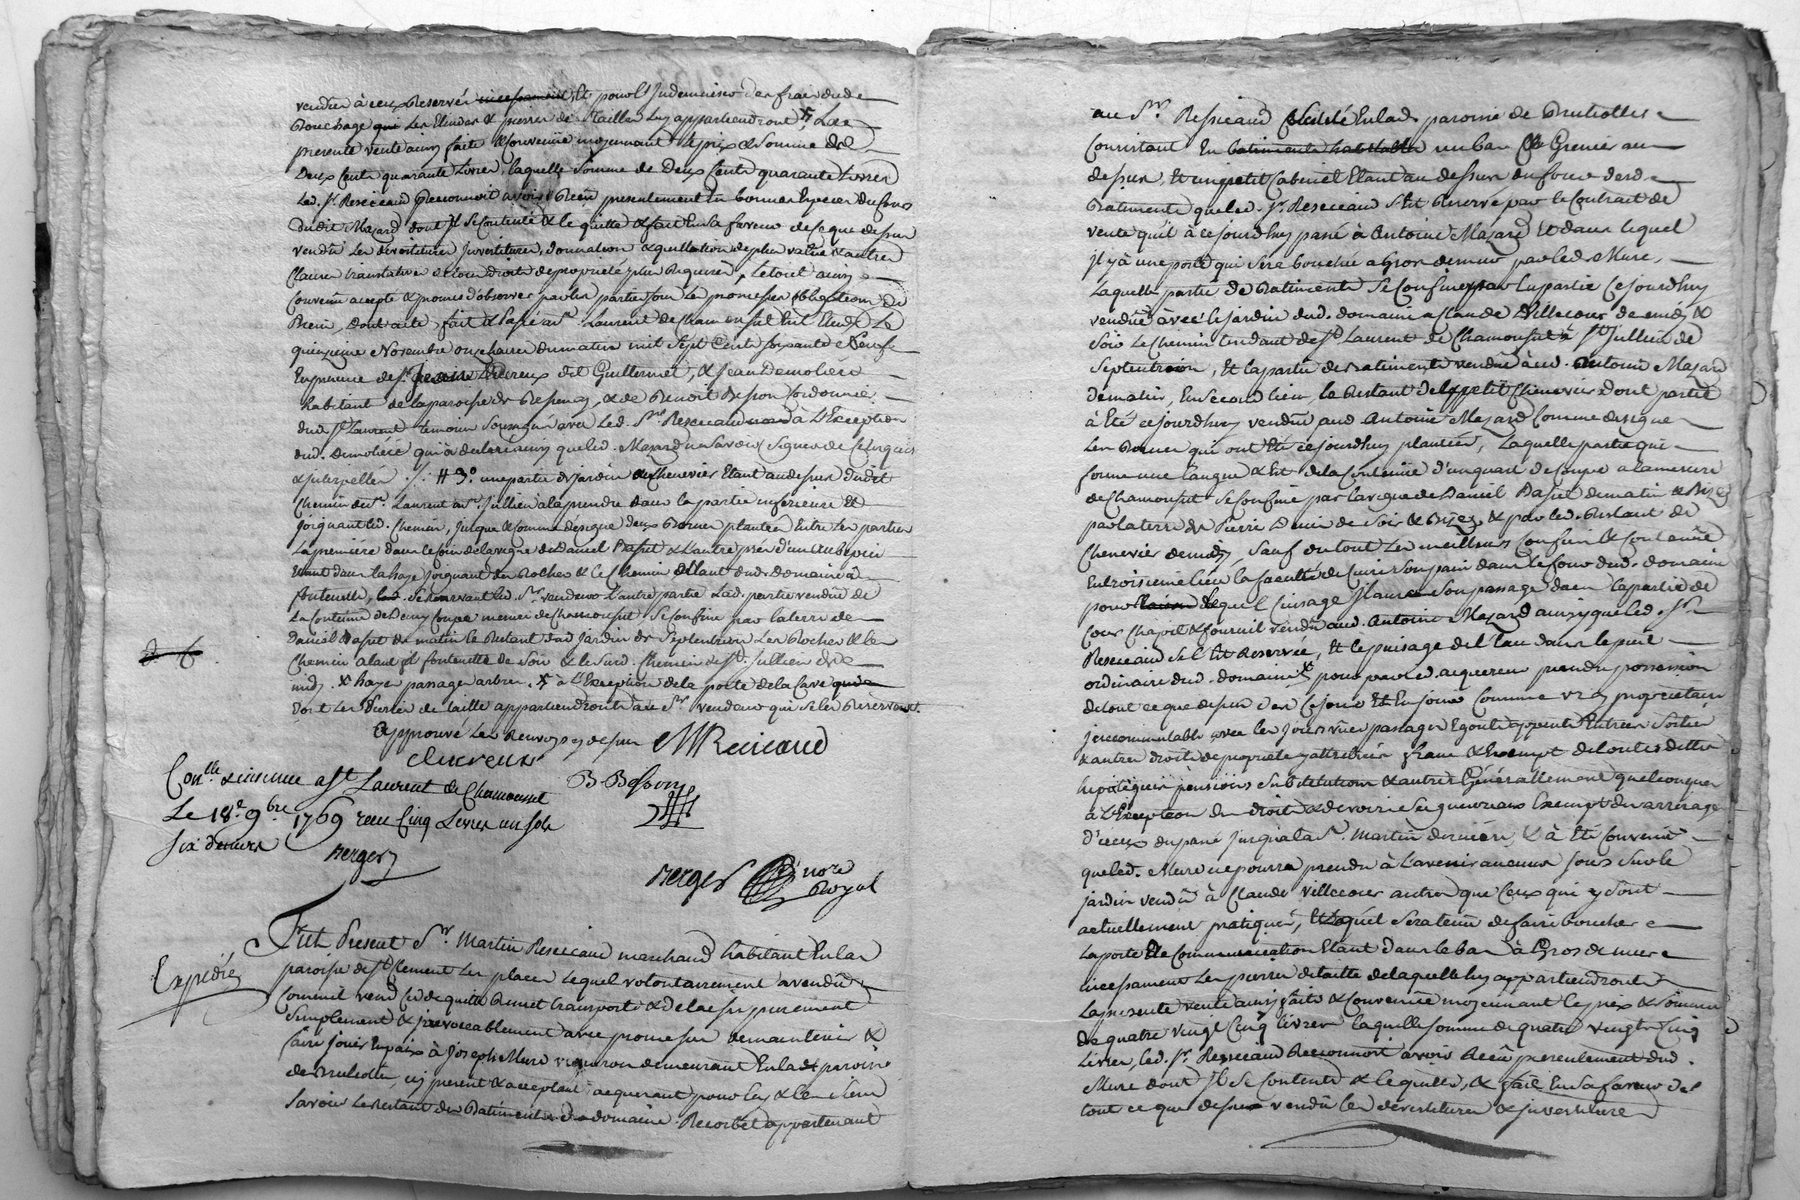 vendeur à ceux Reservés et pour l'Indemniser des frais dud.
Bouchage les Elindes & pierres de tailles luy appartiendront, La
presente vente ainsy faite & Convenüe moyennant le prix & Somme de
Deux Cents quarante Livres, laquelle Somme de Deux Cents quarante Livres
Led. Sr. Reseicaud Reconnoit avoir Recüe presentement En bonnes Especes du Cours
dudit Mazard dont Il se Contente & le quitte & fait En sa faveur de ce que dessus
vendu les devestitures Investitures, donnation & quittation de plus value & autres
Clauses translative de tous droits de proprieté plus Requises, Le tout ainsy
Convenu accepté & promis d'observer par les parties sous les promesses obligations de
Biens, dont acte, fait & Passé à St. Laurent de Chamousset En l'Etude Le
quinzieme Novembre onze heures du matin mil Sept Cents soixante & Neuf
En presence de Sr. Clereux dit Guillermet, & Jean Demoliere
habitant de la paroisse de Bessenay, & de Benoit Besson Cordonnier
dud. St. Laurent temoins Soussignés avec Led. Sr. Reseicaud à L'Exception
dud. Demoliere qui a declaré ainsy que led. Mazard ne Savoir Signer de Ce Enquis
& Interpellés ./. # 3°. une partie de jardin & Chenevier Etant au dessus dudit
Chemin de St. Laurent à St. Jullien à la prendre dans la partie inferieure Et
Joignant led. Chemin, Jusque & Comme designe deux Bornes plantées Entre les parties
La premiere dans le Coin de la vigne de Daniel Basset & L'autre près d'un Aubepin
Etant dans la haye Joignant des Rochers & le Chemin allant dud. Domaine à
fontenelle, Se Reservant led. Sr. vendeur L'autre partie Lad. partie vendüe de
La Contenüe de deux Coupes mesure de Chamousset, Se Confine par la terre de
Daniel Basset de matin le Restant dud Jardin de Septentrion Les Rochers & le
Chemin alant à fontenelle de Soir & le Susd. Chemin de St. Jullien de
midy. x haye passage arbres. x à L'Exception de la porte de la Cave
dont Les Pierres de taille appartiendront aud. Sr. vendeur qui Se les Reservent.
Approuvé Les Renvoys cy dessus MReseicaud
Clereux
B. Besson
Conlle & insinué à St Laurent de Chamousset
Le 18e 9bre 1769 receu Cinq Livres un Sols
Six deniers
Berger
Berger Nore
Royal
Expédiée
Fut Présent Sr. Martin Reseicaud marchand habitant En la
paroisse de St Clement Les places Lequel volontairement a vendu
Comme il vend Cede quitte Remet transporte & delaisse purement
Simplement & irrevocablement avec promesse de maintenir &
faire Jouir En paix à Joseph Mure vigneron demeurant En lad. paroisse
de Brullioles, cy present & acceptant acquerant pour luy & les Siens
Savoir Le Restant des Batiments du domaine Recorbet appartenant
au Sr. Reseicaud situé En lad. paroisse de Brullioles
Consistant En un bas & Grenier au
dessus, Et un petit Cabinet Etant au dessus du four desd.
Batiments que led. Sr. Reseicaud S'est Reservé par le Contract de
vente qu'il a cejourdhuy passé à Antoine Mazard Et dans lequel
Il y a une porte qui Sera bouchée a Gros de mur par led. Mure,
Laquelle partie de Batiments Se Confine par La partie Cejourdhuy
vendüe avec le jardin dud. domaine a Claude Villecour de midy &
Soir Le Chemin tendant de St. Laurent de Chamousset à St. Jullien de
Septentrion, Et La partie des batiments vendüe aud. Antoine Mazard
de matin, En Second lieu, le Restant du petit Chenevier dont partie
à Eté cejourdhuy vendüe aud Antoine Mazard Comme designe
Les Bornes qui ont Eté cejourdhuy plantées, Laquelle partie qui
forme une langue & Est de la Contenüe d'un quart de Coupe a la mesure
de Chamousset Se Confine par la vigne de Daniel Basset de matin & Bize
par la terre de Pierre de Soir & Bize, & par led. Restant de
Chenevier de midy, Sauf du tout Les meilleurs Confins & Contenüe
En troisieme Lieu la faculté de Cuire Son pain dans le four dud. domaine
pour lequel Cuisage Il aura Son passage dans la partie de
Cour Chapit & fournil vendüe aud. Antoine Mazard ainsy que led. Sr.
Reseicaud Se l'Est Reservée, Et le puisage de l'Eau dans le puit
ordinaire dud. domaine x pour par led. acquereur prendre possession
de tout ce que dessus dès Ce Jour Et En Jouir Comme vray proprietaire
incommutable avec les Jours vües passages Egouts appents Entrées Sorties
& autres droits de proprieté y attribués franc & Exempt de toutes dettes
hipoteques pensions Substitutions & autres Generallement quelconques
à L'Exception des droits & devoirs Seigneuriaux Exempt des arrerages
d'iceux du passé Jusqu'a la St. Martin derniere, & à Eté Convenu
que led. Mure ne pourra prendre à L'avenir aucuns Jours Sur le
jardin vendu à Claude Villecour autres que Ceux qui y Sont
actuellement pratiqués, Et lequel Sera tenu de faire boucher
La porte de Communication Etant dans le bas à Gros de mur
incessament les pierres de taille de laquelle luy appartiendront
La presente vente ainsy faite & Convenüe moyennant le prix & Somme
de quatre vingt Cinq Livres laquelle Somme de quatre vingts Cinq
Livres, led. Sr. Reseicaud Reconnoit avoir Recüe presentement dud.
Mure dont Il Se Contente & le quitte, & fait En Sa faveur de
tout ce que dessus vendu les devestitures & investitures